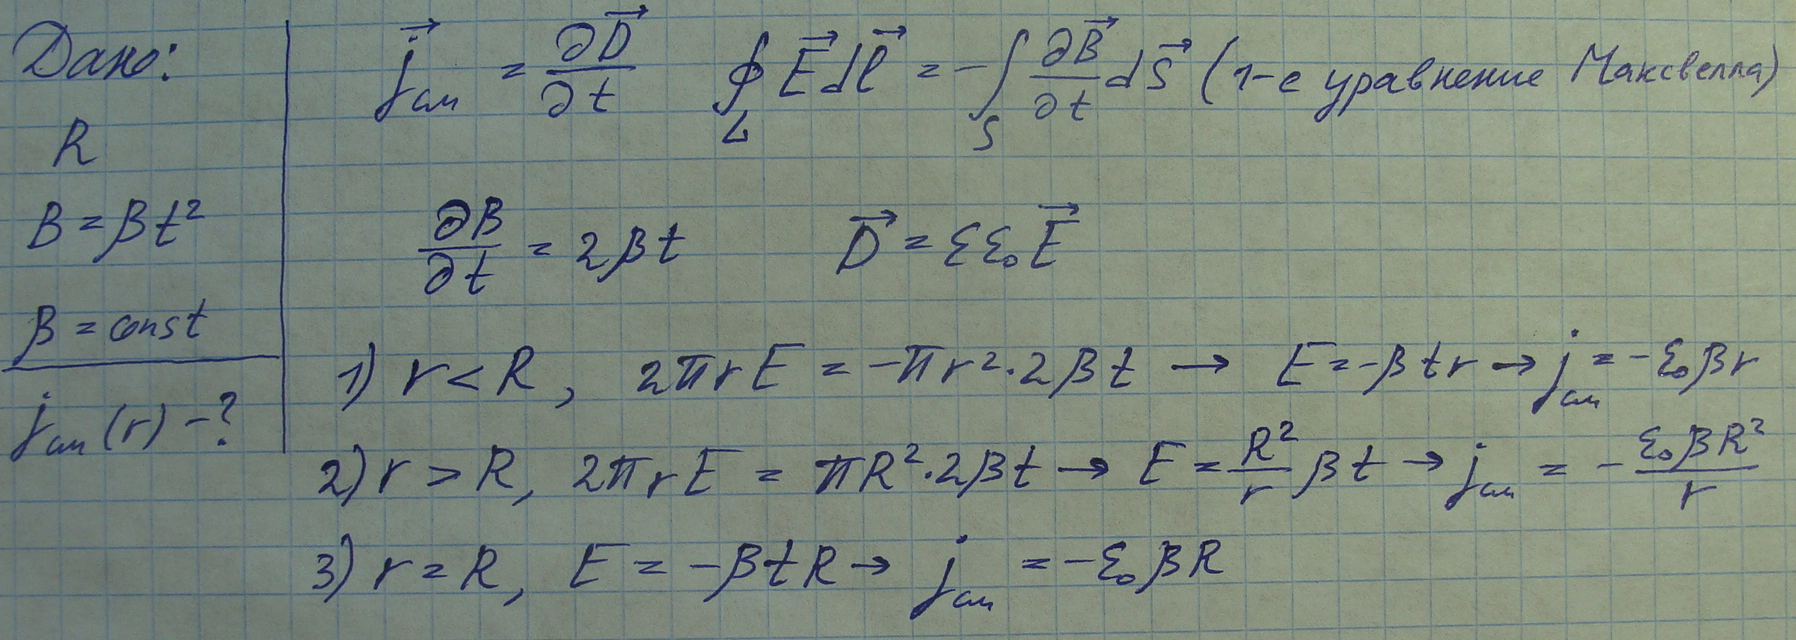 Дано:
R
B = βt²
β = const
j_см (r) - ?
j⃗_см = ∂D⃗/∂t ∮_L E⃗dl⃗ = -∫_S ∂B⃗/∂t dS⃗ (1-е уравнение Максвелла)
∂B/∂t = 2βt D⃗ = εε₀E⃗
1) r < R, 2πrE = -πr²·2βt → E = -βtr → j_см = -ε₀βr
2) r > R, 2πrE = πR²·2βt → E = R²/r βt → j_см = - ε₀βR²/r
3) r = R, E = -βtR → j_см = -ε₀βR